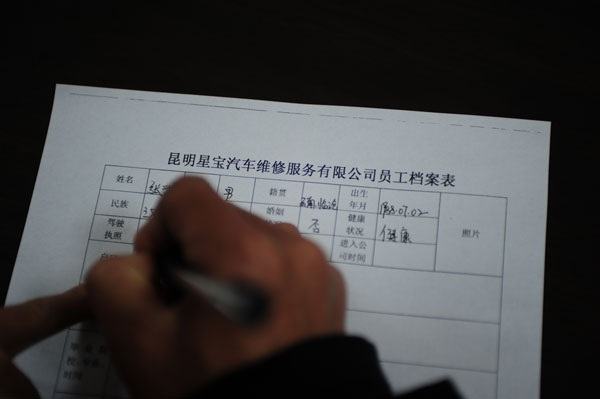 昆明星宝汽车维修服务有限公司员工档案表
姓名 张 男 籍贯 云南临沧 出生年月 1983.07.02 照片
民族 汉 婚姻 否 健康状况 健康
驾驶执照 进入公司时间
毕业院校、专业、时间